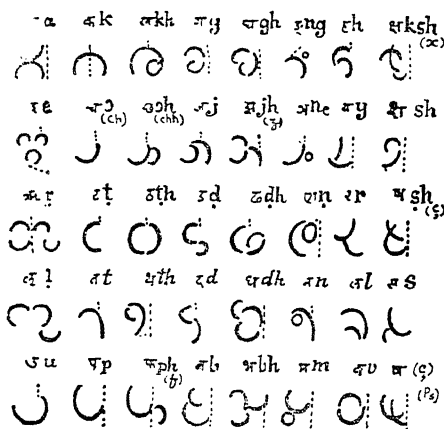 a क k ख kh ग g घ gh ङ ng ह h क्ष ksh
(x)
इ e च c छ ch ज j झ jh ञ ne य y श sh
(ch) (chh) (z)
ऋ ṛ ट ṭ ठ ṭh ड ḍ ढ ḍh ण ṇ र r ष ṣh
(ş)
ऌ ḷ त t थ th द d ध dh न n ल l स s
उ u प p फ ph ब b भ bh म m व v
(f) (ç) (ps)